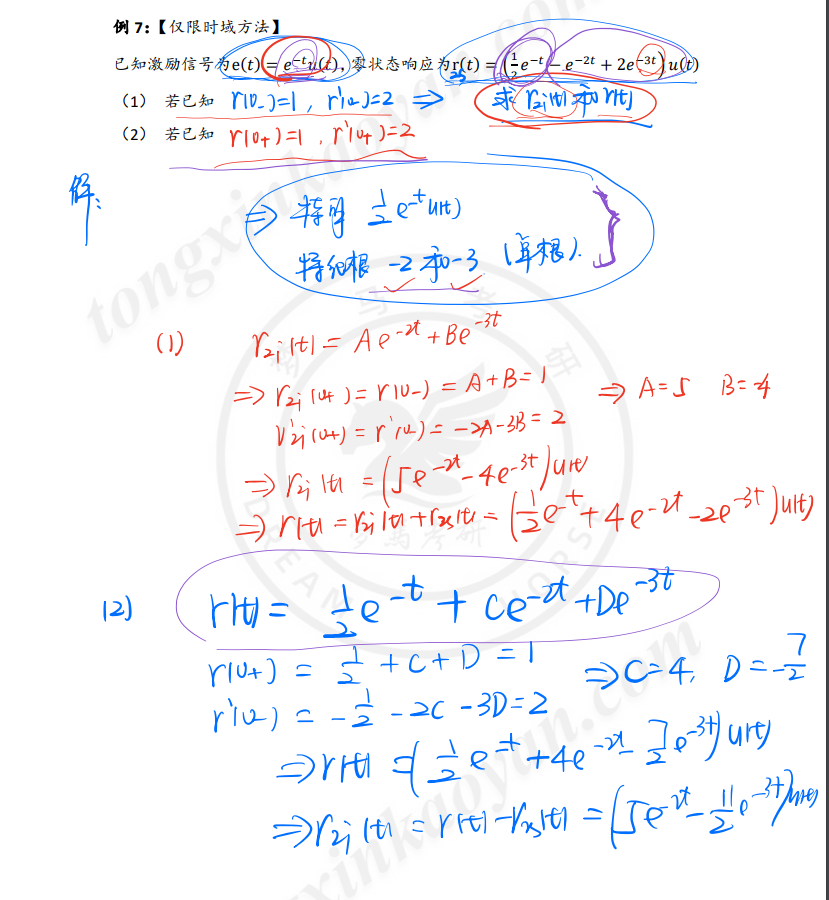 例 7：【仅限时域方法】
已知激励信号为e(t) = e^{-t}u(t)，零状态响应为r_{zs}(t) = (\frac{1}{2}e^{-t} - e^{-2t} + 2e^{-3t})u(t)
（1） 若已知 r(0_-)=1 , r'(0_-)=2 ⇒ 求 r_{zi}(t) 和 r(t)
（2） 若已知 r(0_+)=1 , r'(0_+)=2
解：
⇒ 特解 \frac{1}{2}e^{-t}u(t)
特征根 -2 和 -3 (单根).
(1) r_{zi}(t) = Ae^{-2t} + Be^{-3t}
⇒ r_{zi}(0_+) = r(0_-) = A+B=1 ⇒ A=5 B=4
r'_{zi}(0_+) = r'(0_-) = -2A-3B=2
⇒ r_{zi}(t) = (5e^{-2t} - 4e^{-3t})u(t)
⇒ r(t) = r_{zi}(t) + r_{zs}(t) = (\frac{1}{2}e^{-t} + 4e^{-2t} - 2e^{-3t})u(t)
(2) r(t) = \frac{1}{2}e^{-t} + Ce^{-2t} + De^{-3t}
r(0_+) = \frac{1}{2} + C + D = 1 ⇒ C=4, D=-\frac{7}{2}
r'(0_-) = -\frac{1}{2} - 2C - 3D=2
⇒ r(t) = (\frac{1}{2}e^{-t} + 4e^{-2t} - \frac{7}{2}e^{-3t})u(t)
⇒ r_{zi}(t) = r(t) - r_{zs}(t) = (5e^{-2t} - \frac{11}{2}e^{-3t})u(t)
tongxinkaoyan.com